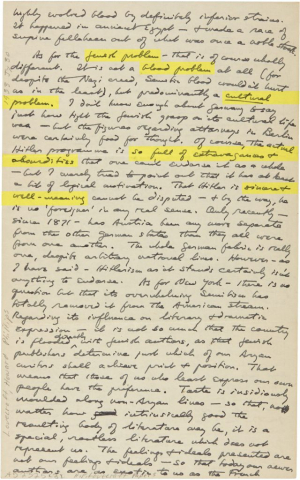 highly evolved blood by definitely inferior strains.
it happened in ancient Egypt — & made a race of
supine fellaheen out of what was once a noble stock
As for the Jewish problem — that is of course wholly
different. It is not a blood problem at all (for
despite the Nazi creed, Semitic blood couldn't hurt
us in the least), but predominantly a cultural
problem. I don't know enough about Germany today
just how tight the Jewish grasp on its cultural life
was — but the figures regarding attorneys in Berlin
were certainly food for thought. Of course, the actual
Hitler programme is so full of extravagances &
absurdities that one can't endorse it as a whole
— but I merely tried to point out that it has at least
a bit of logical motivation. That Hitler is sincere &
well-meaning cannot be disputed — & by the way, he
is no "foreigner" in any real sense. Only recently —
since 1871 — has Austria been any more separate
from the other German states than they all were
from one another. The whole German fabric is really
one, despite arbitrary national lines. However — as
I have said — Hitlerism as it stands certainly isn't
anything to endorse. As for New York — there is no
question but that its overwhelming Semitism has
totally removed it from the American stream.
Regarding its influence on literary & dramatic
expression — it is not so much that the country
is flooded directly with Jewish authors, as that Jewish
publishers determine just which of our Aryan
writers shall achieve print & position. That
means that those of us who least express our own
people have the preference. Taste is insidiously
moulded along non-Aryan lines — so that, no
matter how intrinsically good the
resulting body of literature may be, it is a
special, rootless literature which does not
represent us. The feelings & ideals presented are
not our feelings & ideals — so that today our newer
authors are as exotic to us as the French